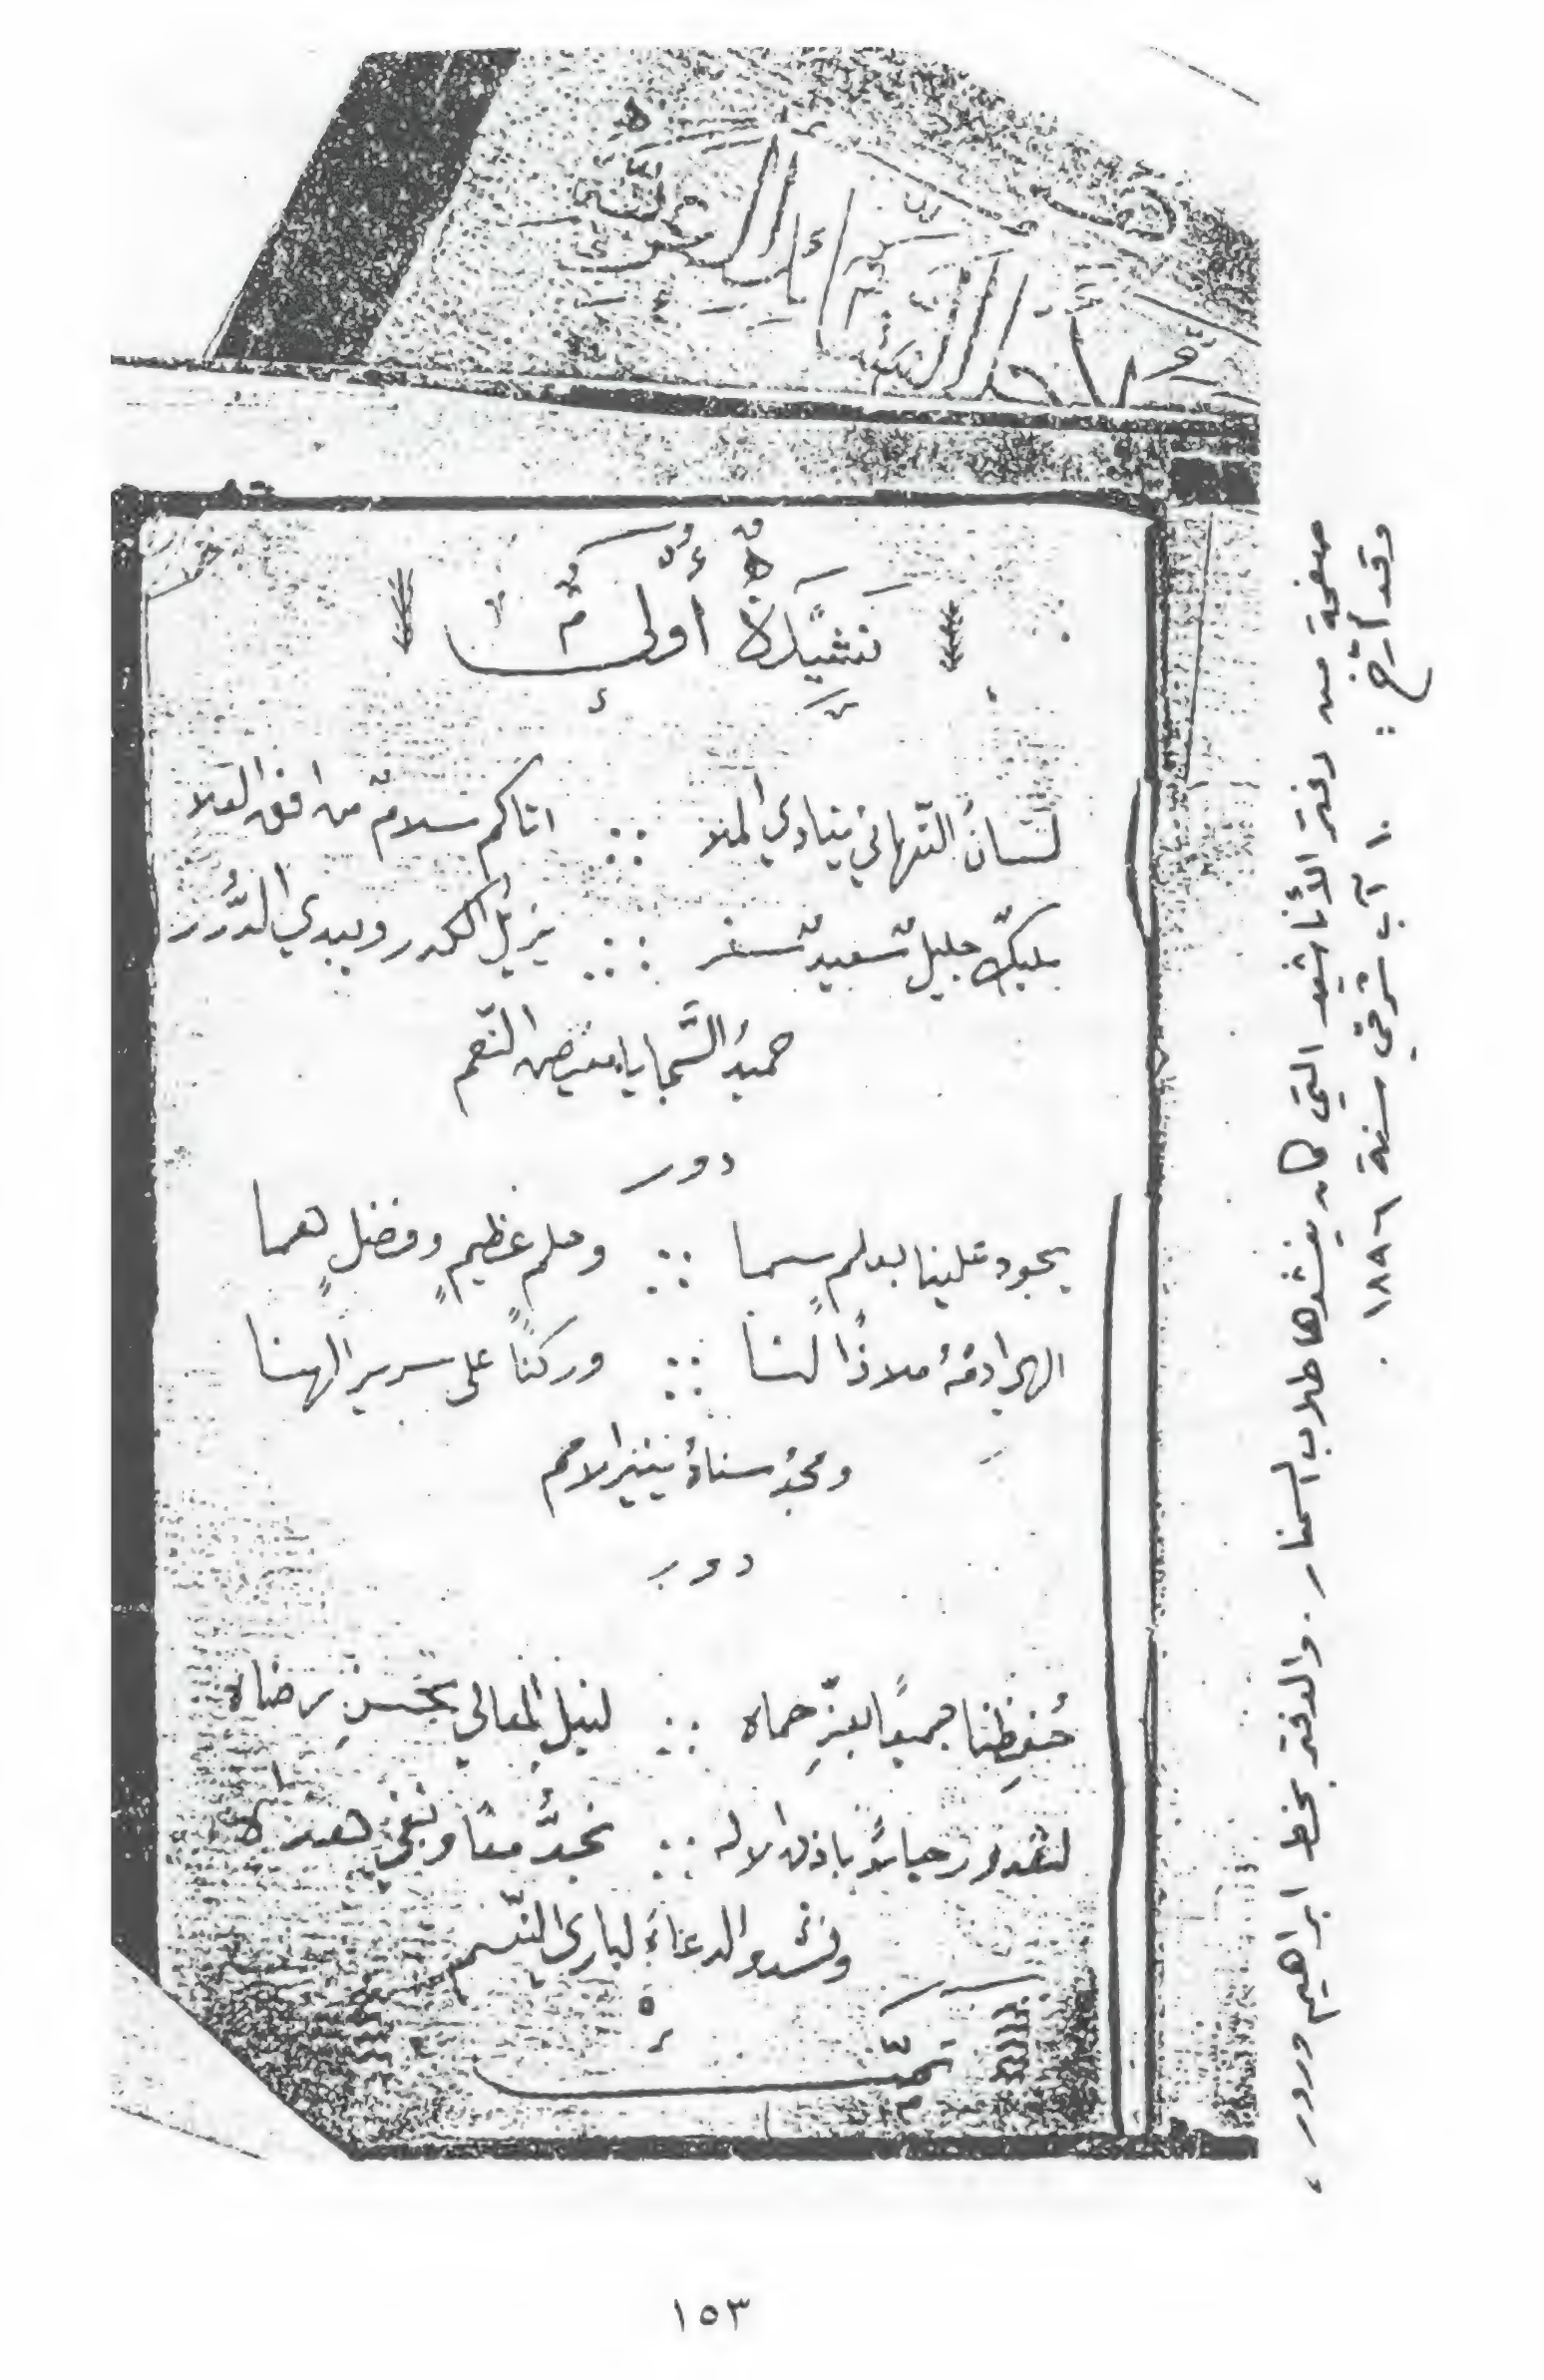 نَشِيدَةٌ أُولى
لسانُ التّهاني ينادي الملا :: اتاكم سلامٌ من افق العلا
بليكٍّ جليلٍ سعيدٍ سفر :: يزيلُ الكدر ويبدي الدُّرر
حميدُ السَّجايا مفيض النّعم
دور
يجود علينا بعلمٍ سما :: وحلم عظيمٍ وفضلٍ هما
الهي ادمهُ ملاذًا لنا :: وركنًا على سرير الهنا
ومجدُ سناهُ ينير الامم
دور
حُفِظنا جميعًا بعزِّ حماه :: لنيل المعالي بحسنِ رضاه
باذن الاله :: نجدُّ معًا ونبغي هداه
ونشدو الدعاءَ لباري النّسم
تمّت
صفحة من دفتر الأناشيد التي كان ينشدها طلاب السمار . والدفتر بخط ابراهيم ورور ،
وقد أرّخ : ١٠ آب شرقي سنة ١٨٩٦ .
١٥٣